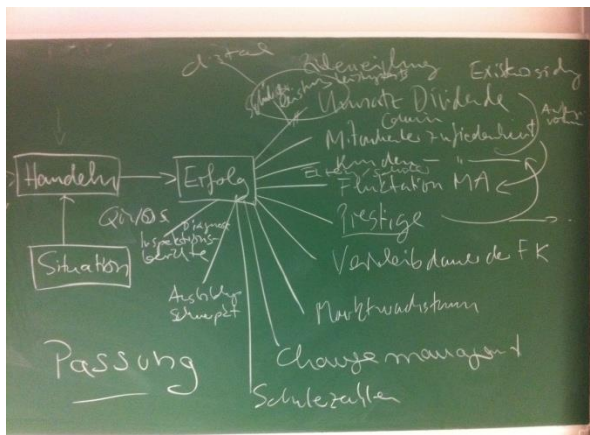 distal
Zielerreichung
Existenz
Umsatz Dividende
Mitarbeiter zufriedenheit
Kunden - "
Eltern/Schüler
Fluktation MA
Prestige
Verbleibdauer der FK
Marktwachstum
Change managment
Schülerzahlen
Handeln
Erfolg
QM/QS
Diagnose
Inspektions-
berichte
Situation
Ausbildungs-
Passung